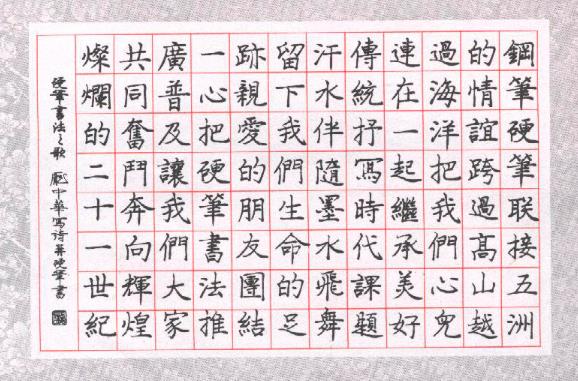 鋼筆硬筆聯接五洲
的情誼跨過高山越
過海洋把我們心兒
連在一起繼承美好
傳統抒寫時代課題
汗水伴隨墨水飛舞
留下我們生命的足
跡親愛的朋友團結
一心把硬筆書法推
廣普及讓我們大家
共同奮鬥奔向輝煌
燦爛的二十一世紀
硬筆書法之歌 龐中華写诗并硬筆書